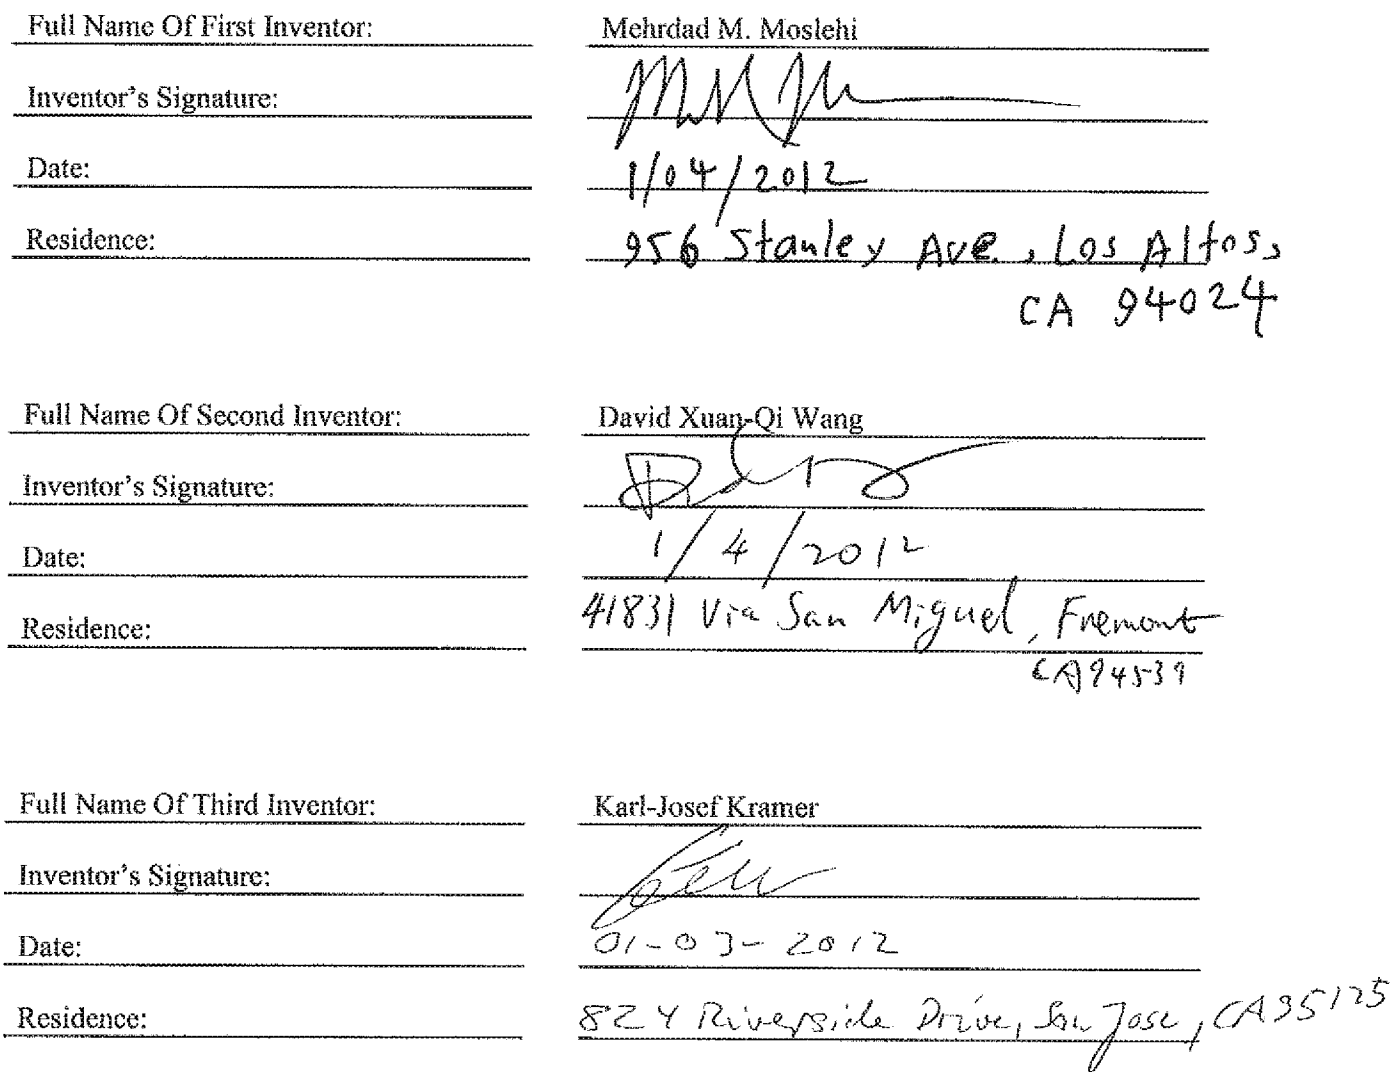 Full Name Of First Inventor: Mehrdad M. Moslehi
Inventor's Signature:
Date: 1/04/2012
Residence: 956 Stanley Ave., Los Altos,
CA 94024
Full Name Of Second Inventor: David Xuan-Qi Wang
Inventor's Signature:
Date: 1/4/2012
Residence: 41831 Via San Miguel, Fremont
CA 94539
Full Name Of Third Inventor: Karl-Josef Kramer
Inventor's Signature:
Date: 01-03-2012
Residence: 824 Riverside Drive, San Jose, CA 95125